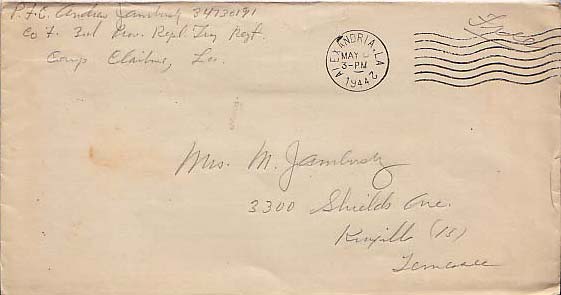 P.F.C. Andrew Jambusky 34730191
Co F. 3rd Prov. Repl. Trng Regt.
Camp Claiborne, La.
ALEXANDRIA, LA
MAY
3-PM
1944
Free
Mrs. M. Jambusky
3300 Shields Ave.
Knoxville (18)
Tennessee